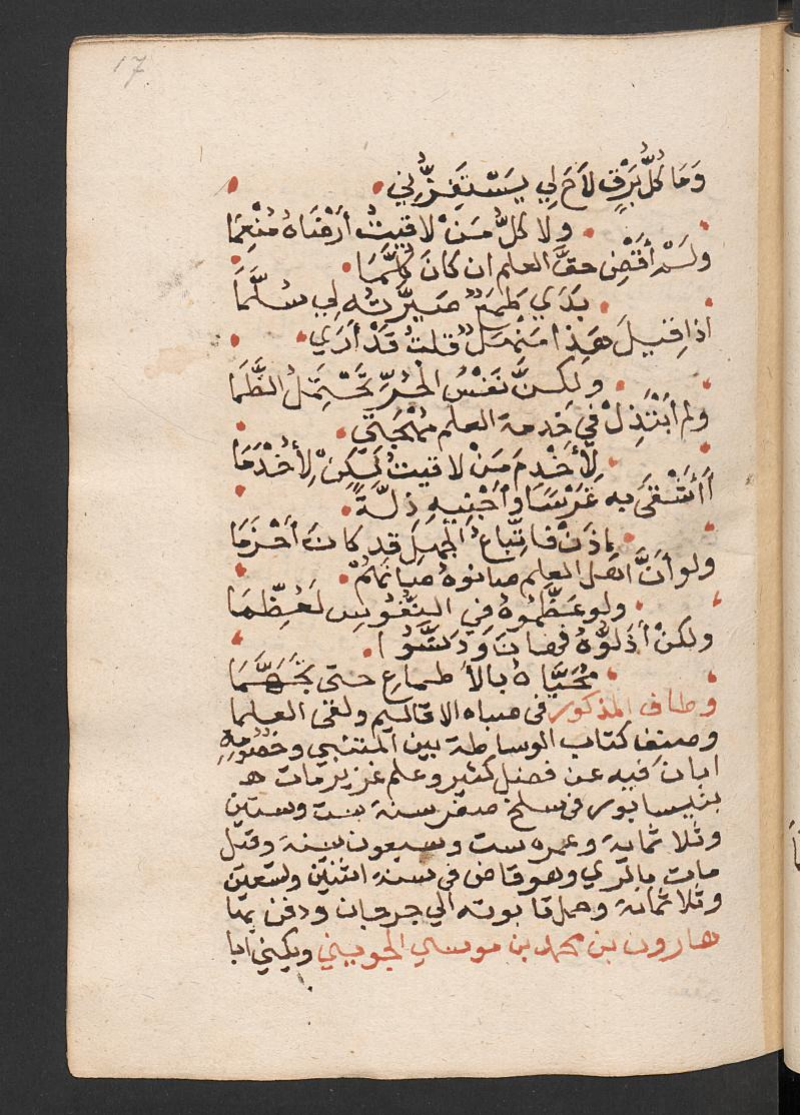 17
وَمَا كُلُّ بَرْقٍ لَاحَ لِي يَسْتَفِزُّنِي
ولا كلُّ مَنْ لاقيتُ أرْضَاهُ مُنْعِمَا
ولَمْ أَقْضِ حقَّ العلم ان كانَ كُلَّمَا
بَدَي طَمَعٌ صَيَّرتُه لِي سُلَّمَا
اذا قيلَ هَذا مَنْهلٌ قلتُ قَدْ أرَي
ولكنَّ نَفْسُ الحُرِّ تَحْتَمِلُ الظَّمَا
ولم أَبْتَذِلْ في خِدمة العلم مُهْجَتي
لِأَخْدِمَ مَنْ لاقيتُ لَكِنْ لِأُخْدَمَا
أأَشْقَى به غَرْسًا وأَجْنِيهِ ذِلَّةً
إذنْ فاتِّباعُ الجهل قد كان أحْزَمَا
ولو أنَّ اهل العلم صانوهُ صانَهُمْ
ولو عَظَّمُوهُ في النُّفُوسِ لَعُظِّمَا
ولكنْ أذَلُّوهُ فهانَ وَدَنَّسُوا
مُحَيَّاهُ بالأطماعِ حتى تَجَهَّمَا
وطاف المذكور في صباه الاقاليم ولقى العلما
وصنف كتاب الوساطة بين المتنبي وخصومِهِ
ابان فيه عن فضل كثير وعلم غزير مات ه
بنيسابور في سلخ صفر سنة ست وستين
وثلاثماية وعمره ست وسبعون سنة وقيل
مات بالري وهو قاض في سنة اثنين وتسعين
وثلاثمائة وحمل تابوته الي جرجان ودفن بها
هارون بن محمد بن موسي الجويني ويكني ابا